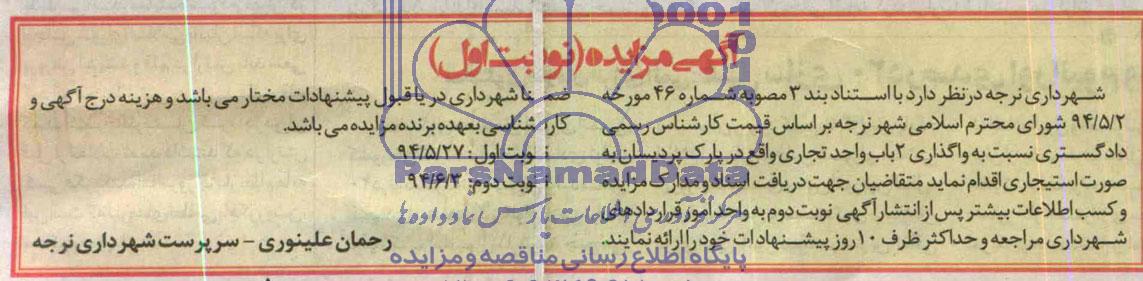 آگهی مزایده (نوبت اول)
شهرداری نرجه در نظر دارد با استناد بند ۳ مصوبه شماره ۴۶ مورخه
۹۴/۵/۲ شورای محترم اسلامی شهر نرجه بر اساس قیمت کارشناس رسمی
دادگستری نسبت به واگذاری ۲ باب واحد تجاری واقع در پارک پردیسان به
صورت استیجاری اقدام نماید متقاضیان جهت دریافت اسناد و مدارک مزایده
و کسب اطلاعات بیشتر پس از انتشار آگهی نوبت دوم به واحد امور قراردادهای
شهرداری مراجعه و حداکثر ظرف ۱۰ روز پیشنهادات خود را ارائه نمایند.
ضمنا شهرداری در یا قبول پیشنهادات مختار می باشد و هزینه درج آگهی و
کارشناسی بعهده برنده مزایده می باشد.
نوبت اول: ۹۴/۵/۲۷
نوبت دوم: ۹۴/۶/۳
رحمان علینوری - سرپرست شهرداری نرجه
ParsNamadData
مرکز فرآوری اطلاعات پارس نماد داده ها
پایگاه اطلاع رسانی مناقصه و مزایده